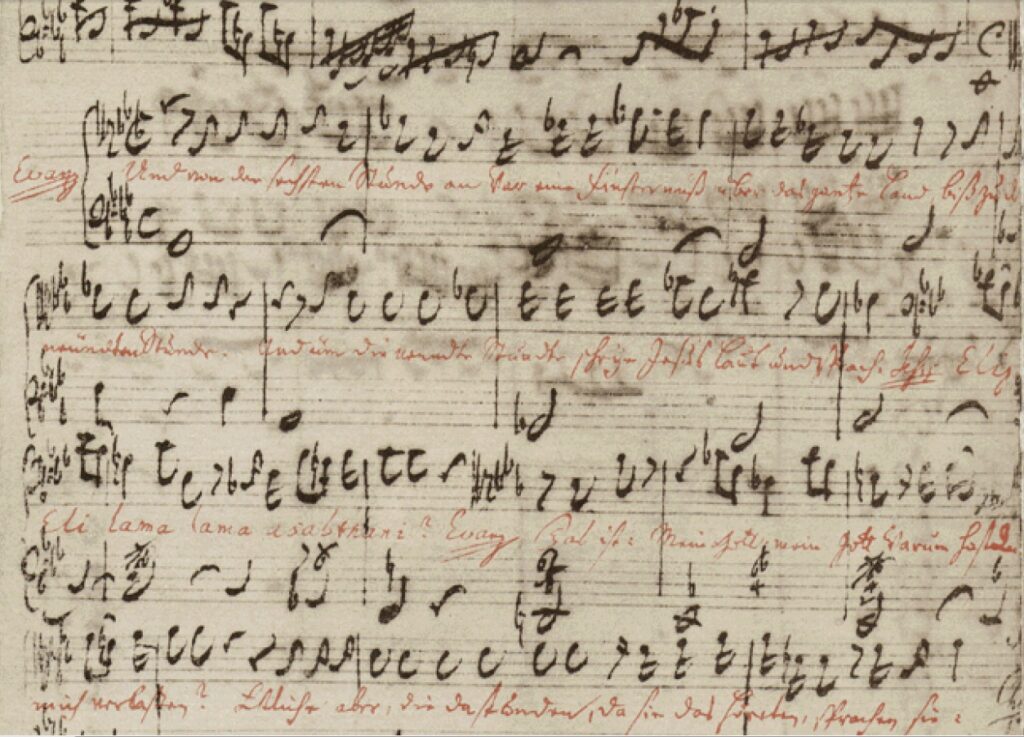 Evang Und von der sechsten Stunde an war eine Finsterniß über das gantze Land, biß zu d
neundten Stunde. Und um die neundte Stunde schrye Jesus laut und sprach: Eli,
Eli lama lama asabthani? Evang Das ist: Mein Gott, mein Gott warum hastdu
mich verlaßen? Etliche aber, die da stunden, da sie das höreten, sprachen sie: